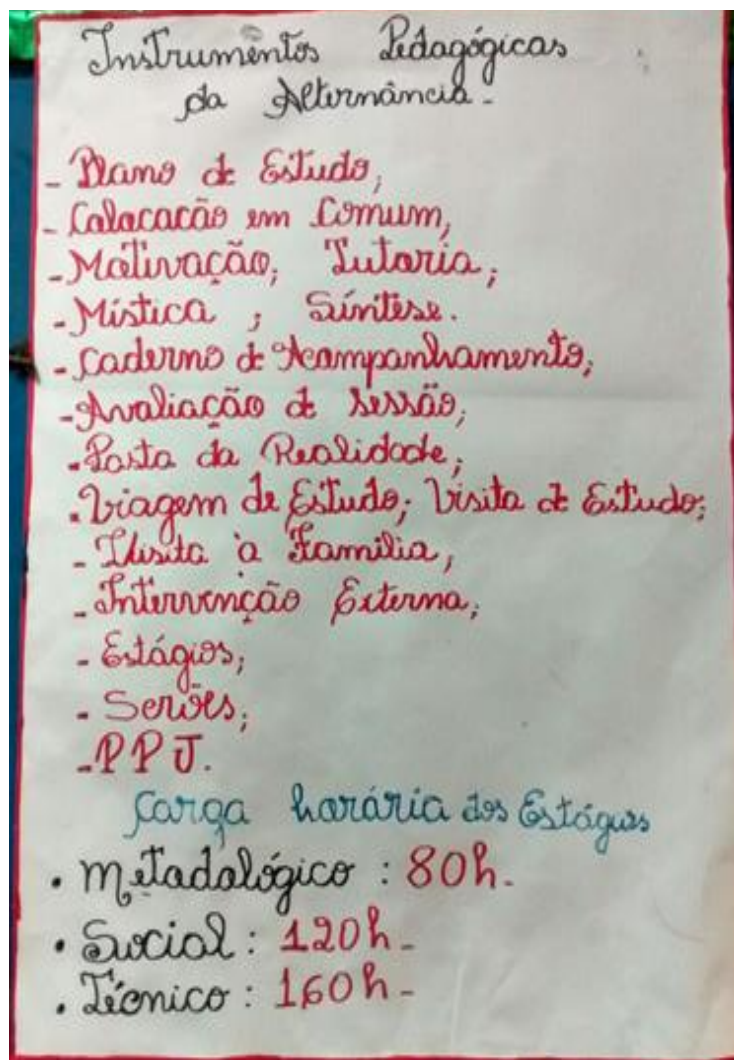 Instrumentos Pedagógicas
da Alternância -
- Plano de Estudo;
- Colacacão em Comum,
- Motivação; Tutoria;
- Mística ; Síntese.
- Caderno de Acompanhamento;
- Avaliação de Sessão;
- Pasta da Realidade;
- Viagem de Estudo; Visita de Estudo;
- Visita à Família,
- Intervenção Externa;
- Estágios;
- Serões;
- PPJ.
Carga horária dos Estágios
• Metadológico : 80h.
• Social : 120h -
• Técnico : 160h -